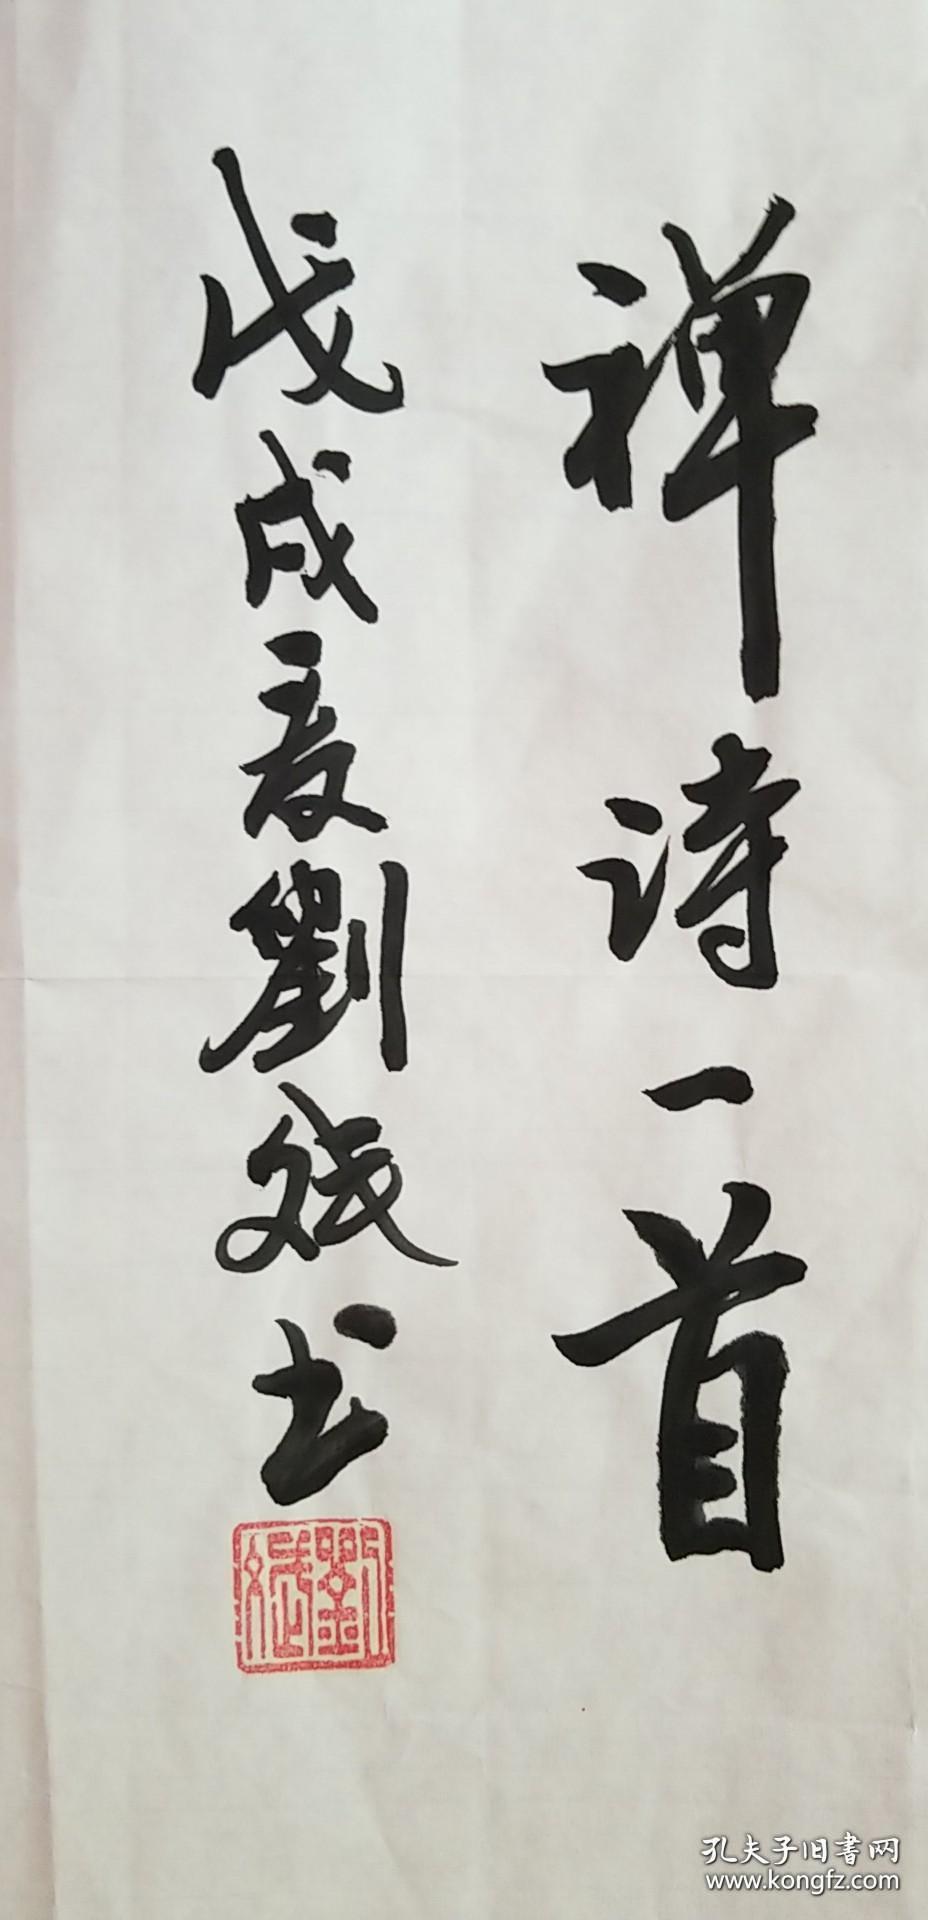 禅诗一首
戊戌夏劉斌书
劉斌
孔夫子旧書网
www.kongfz.com